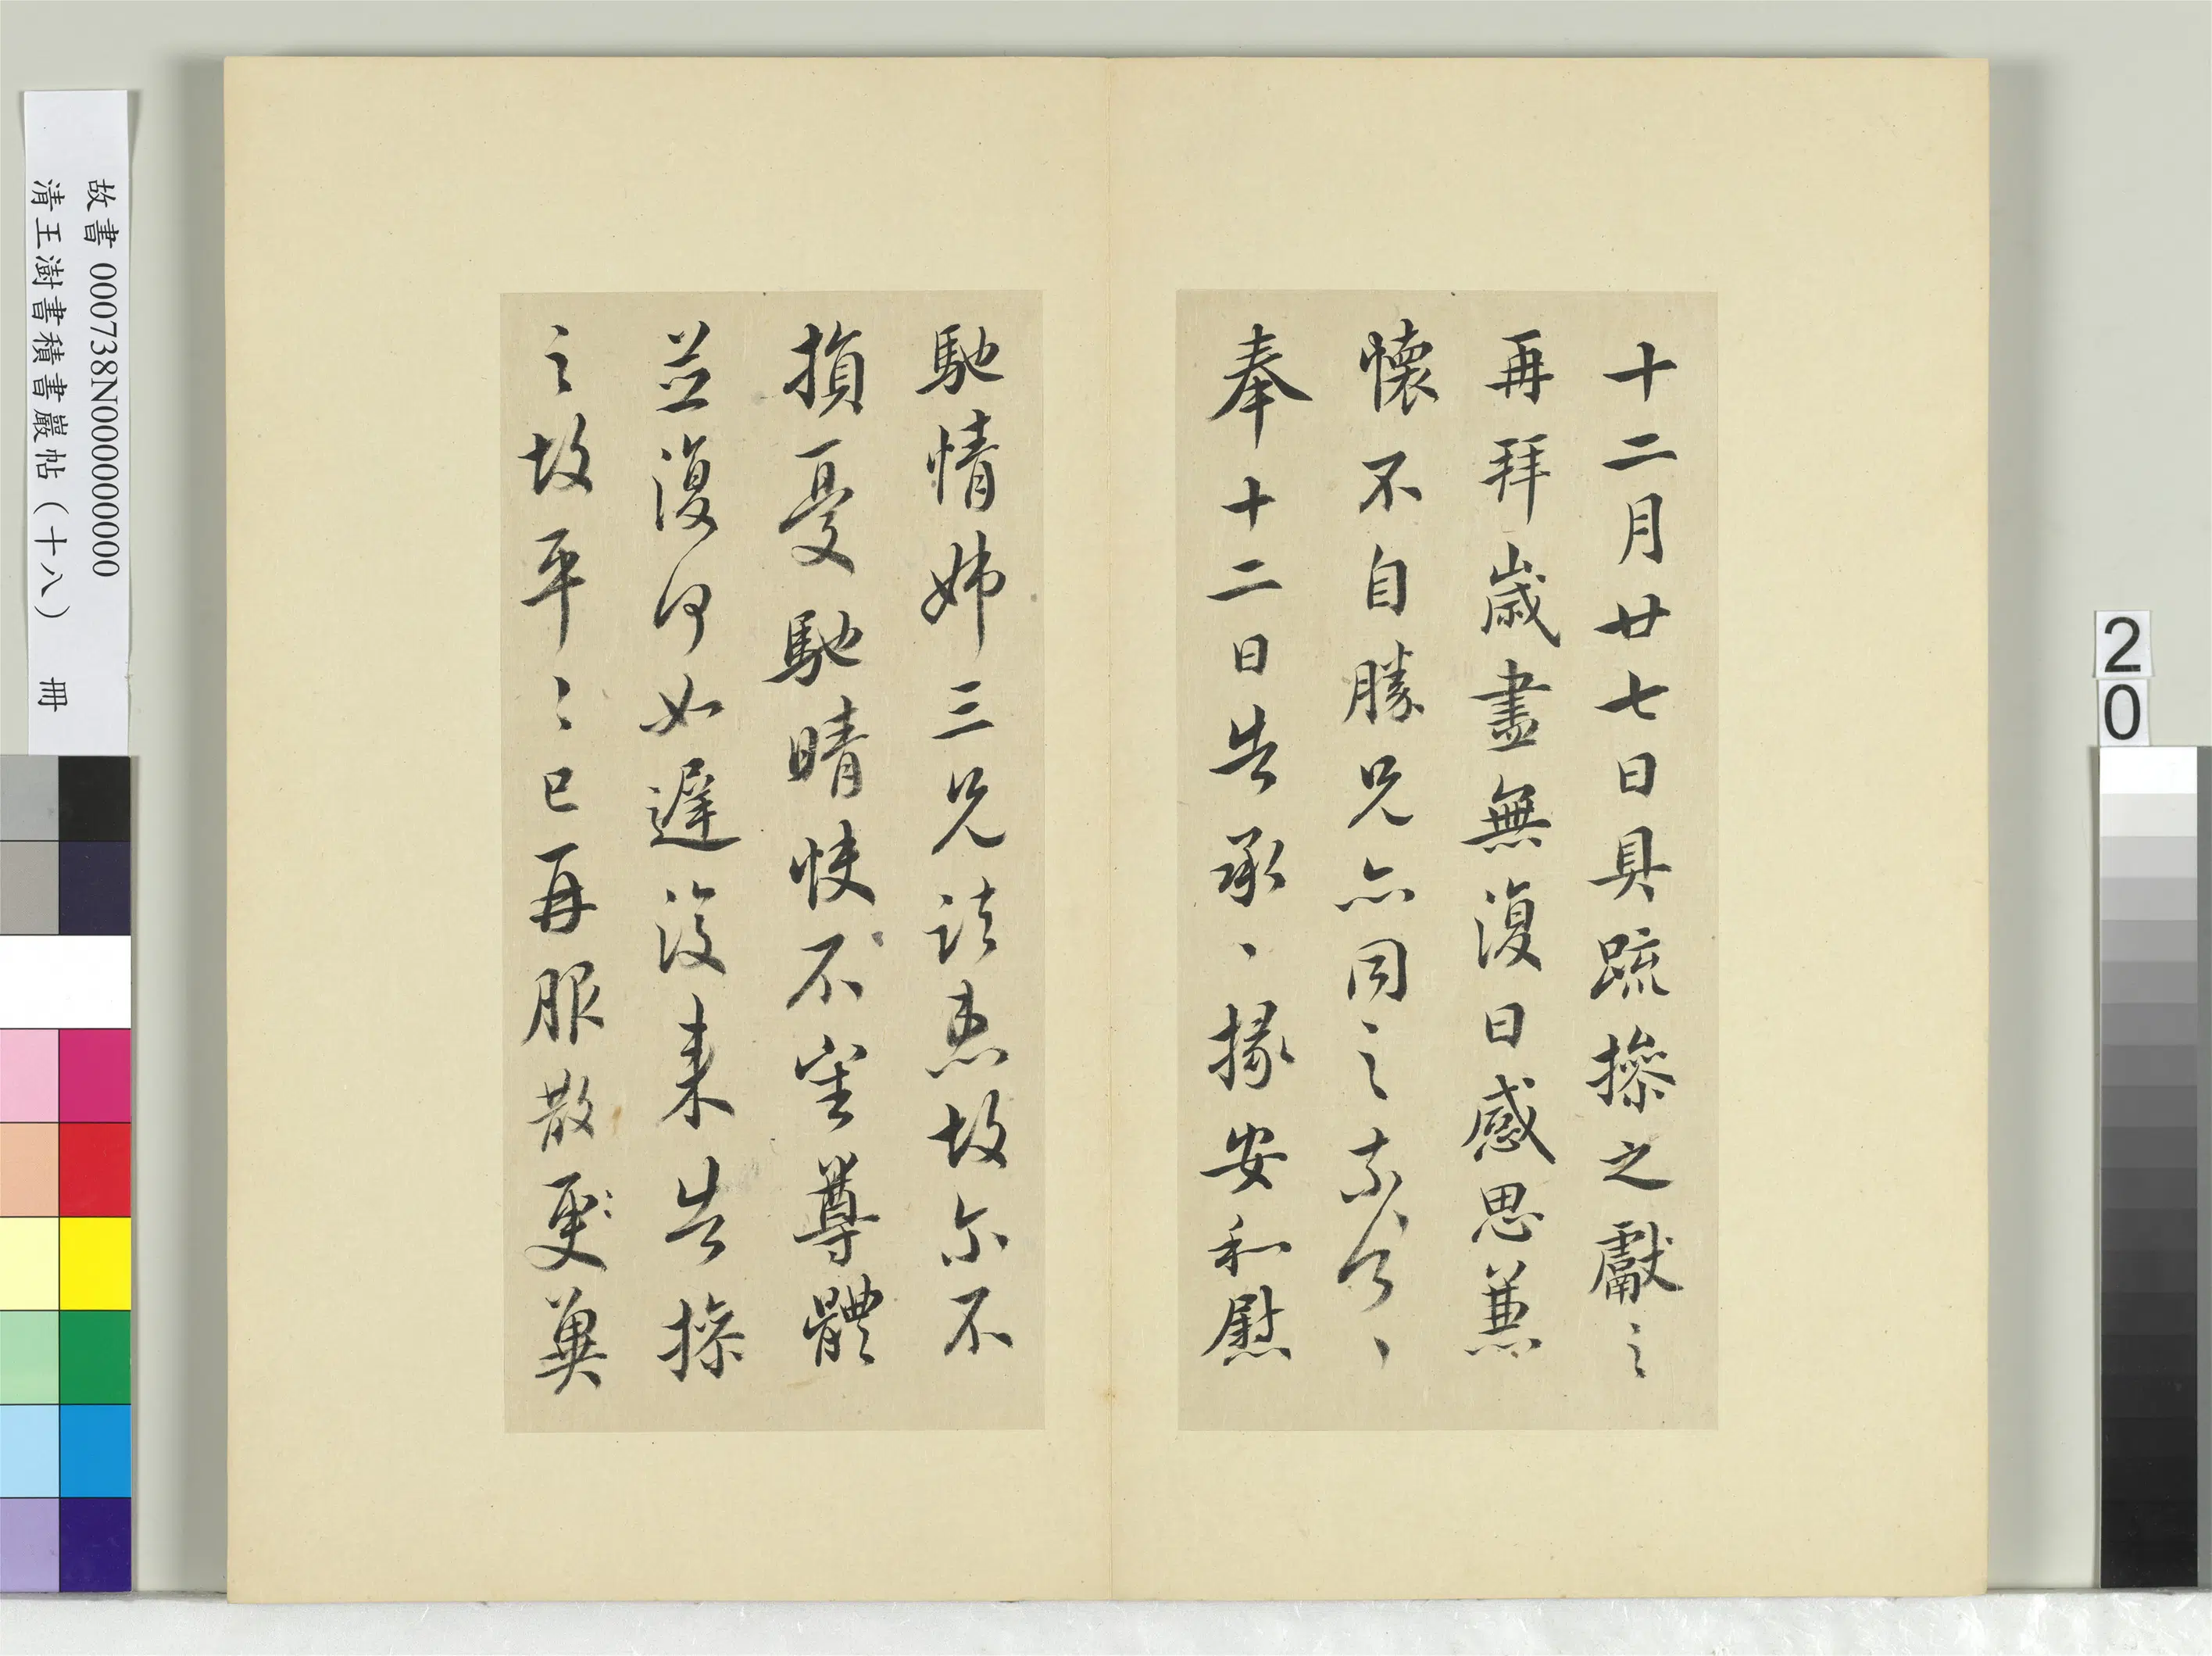 十二月廿七日具疏操之獻之
再拜歲盡無復日感思兼
懷不自勝兄亦同之
奉十二日告承、掾安和慰
馳情姊三兄諸患故尔不
損憂馳晴快不審尊體
並復何如遲復來告操
之故平〻已再服散更冀
故書 000738N000000000
清王澍書積書巖帖（十八） 冊
20